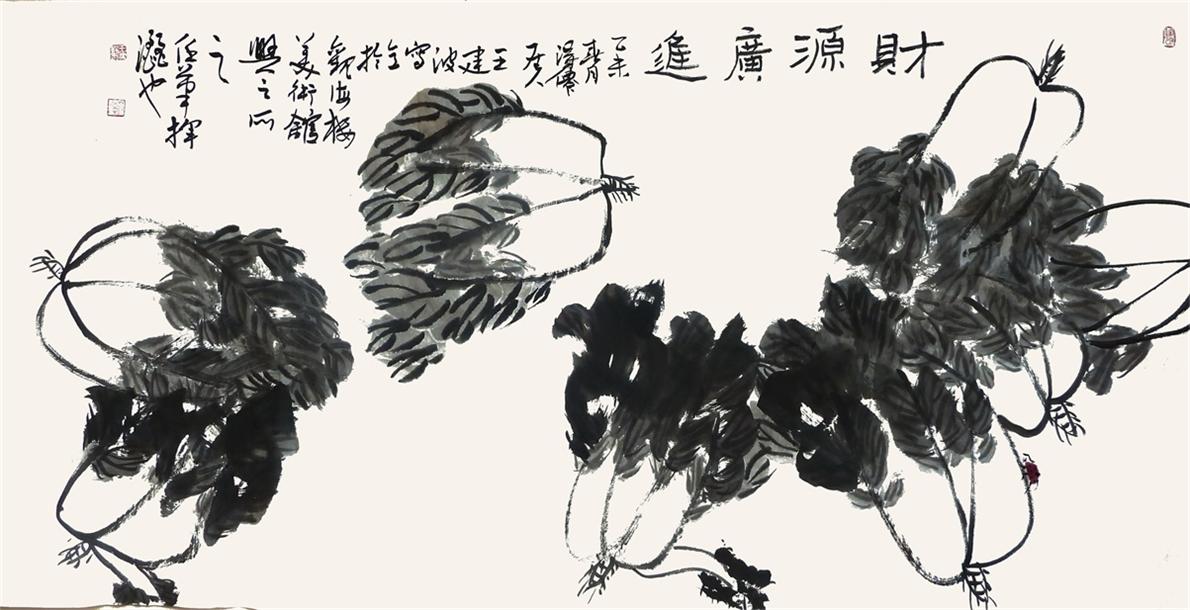 財源廣進
乙未
春月
居人
王
建
波
寫
於
觀海樓
美術館
興之所
之
任筆揮
灑也